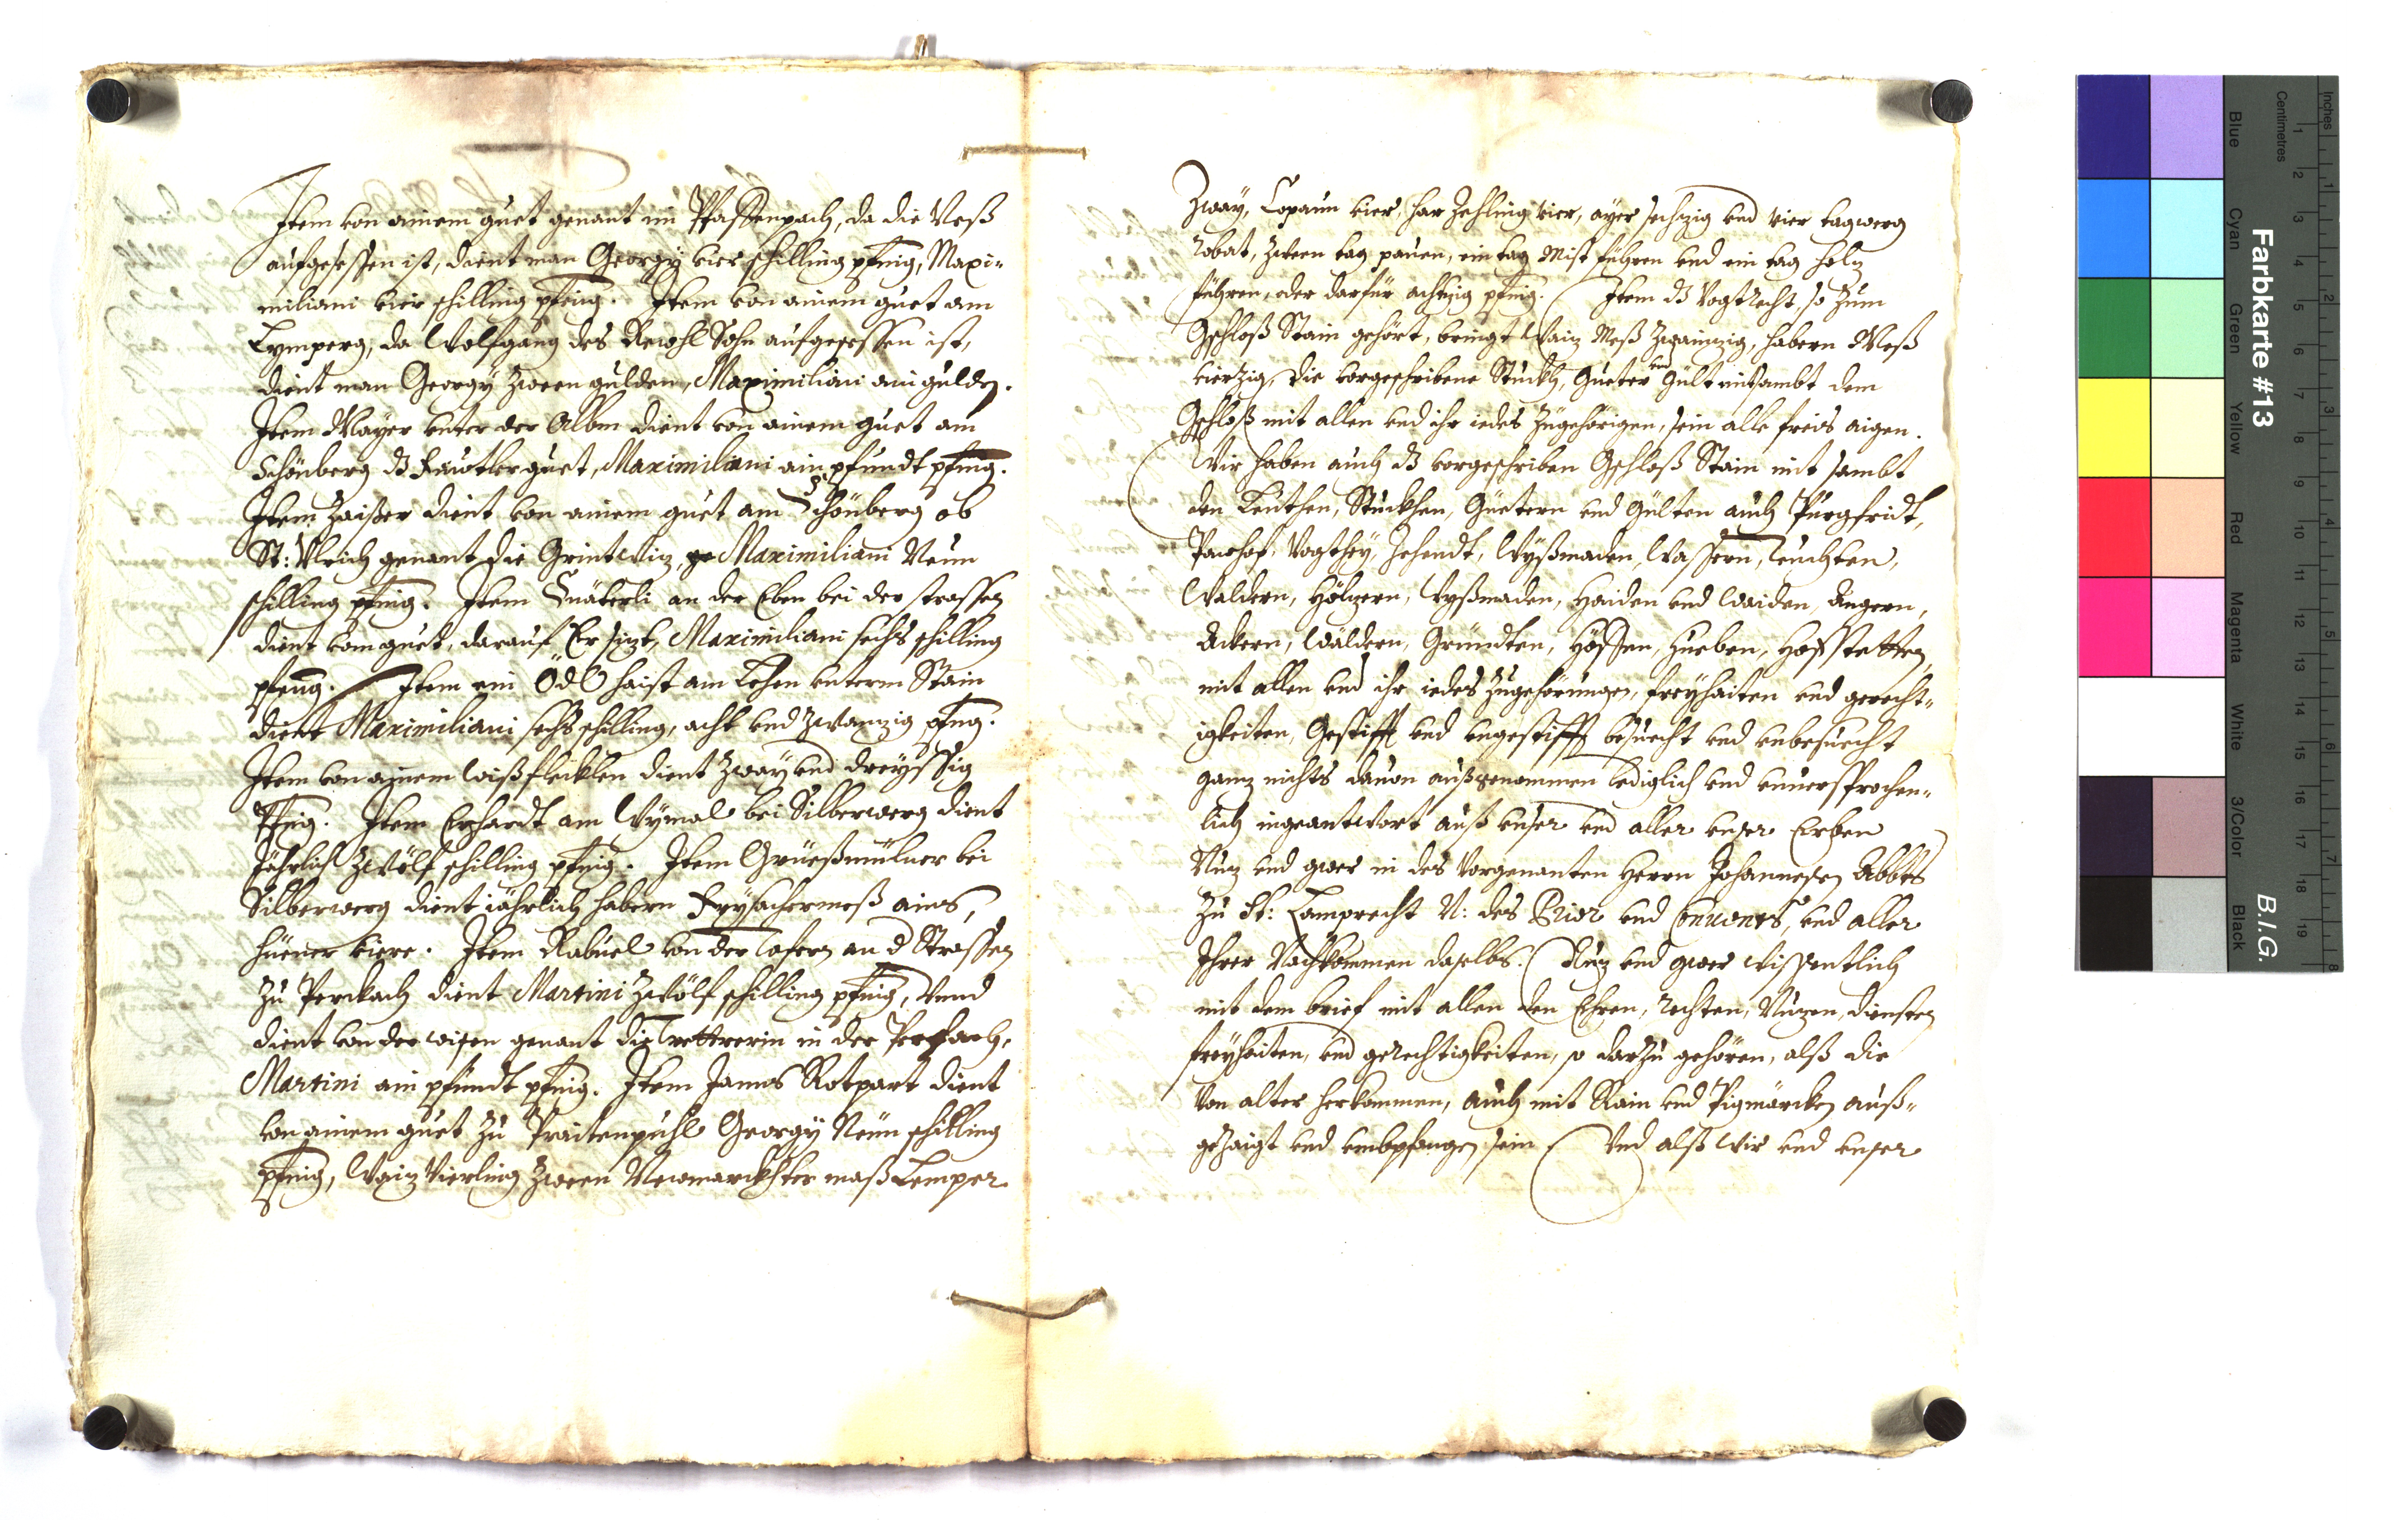 Item von ainem guet genant im Pfaffenpach, da die Neß
aufgesessen ist, dient man Georgÿ vier schilling pfenig, Maxi-
miliani vier schilling pfenig. Item von ainem guet am
Lÿmperg, da Wolfgang des Sohn aufgesessen ist,
dient man Georgÿ zween gulden, Maximiliani ain gulden.
Item Mayer unter der Albm dient von ainem guet am
Schönberg dz guet, Maximiliani ain pfundt pfenig.
Item Zaisser dient von ainem guet am Schönberg ob
St: Vlrich genant die Grintwiz, Maximiliani Neun
schilling pfenig. Item an der Eben bei der strassen
dient vom guet, darauf Er sizt, Maximiliani sechs schilling
pfenig. Item ein Ödl haist am Lehen vnterm Stain
dient Maximiliani sechs schilling, acht vnd zwanzig pfenig.
Item von ainem wißflecklen dient zway vnd dreÿssig
Pfenig. Item Erhardt am Wÿmal bei Silberwerg dient
Jährlich zwölf schilling pfenig. Item Grüeßmülner bei
Silberwerg dient iährlich habern Frÿsachermeß ains,
hüener viere. Item Rabuel von der Tafern an d Strassen
zu Perckach dient Martini zwölf schilling pfenig, Vnnd
dient von der wisen genant die in der
Martini ain pfundt pfenig. Item James Rotpart dient
von ainem guet zu Praitenpuhl Georgÿ Neun schilling
pfenig, Waiz Vierling zween Newmarckhter maß Lemper
Zwaÿ, Copaun vier, har Zehling vier, aÿer sechzig vnd vier tagwerg
robat, zween tag pauen, ein tag Mist führen vnd ein tag holz
führen, oder darfür achtzig pfenig. Item dz Vogtrecht, so zum
Gschloß Stain gehört, bringt Waiz Meß zwainzig, habern Meß
vierzig, die vorgeschribene Stuckh, Güeter vnd Gült mitsambt dem
Gschloß mit allen vnd ihr iedes Zugehörigen, sein alle freis aigen.
Wir haben auch dz vorgeschriben Gschloß Stain mit sambt
den Leuthen, Stuckhen, Güetern vnd Gülten auch Purgfridt,
Pawhof, Vogtheÿ, Zehendt, Wÿßmaden, Wassern, leuchten,
Waldern, Hölzern, Wÿßmaden, Haiden vnd Waiden, Ängern,
Äckern, Wäldern, Gründten, Höffen, Hueben, Hoffstetten
mit allen vnd ihr iedes zugehörungen, freÿhaiten vnd gerecht-
igkeiten, Gestifft vnd vngestifft besuecht vnd vnbesuecht
ganz nichts dauon außgenommen lediglich vnd vnuersprochen-
lich ingeantwort auß vnser vnd aller vnser Erben
Nuz vnd gwer in des Vorgenanten Herrn Johannesen Abbts
zu St: Lamprecht N: des Prior vnd Conuents, vnd aller
Ihrer Nachkommen daselbs. Nuz vnd gwer wissentlich
mit dem brief mit allen den Ehren, rechten, Nuzen, diensten
freÿhaiten, vnd gerechtigkeiten, so darzu gehören, alß die
von alter herkommen, auch mit Rain vnd Pigmärckhen auß-
gezaigt vnd vmbpfangen sein Vnd alß Wir vnd vnser